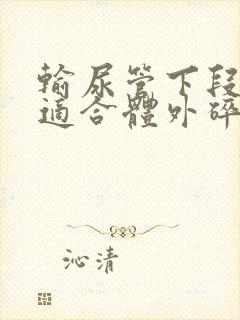 輸尿管下段
適合體外碎
沁清